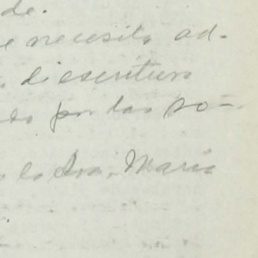 de.
e necesita ad-
di escritura
por las so-
la Sra. María